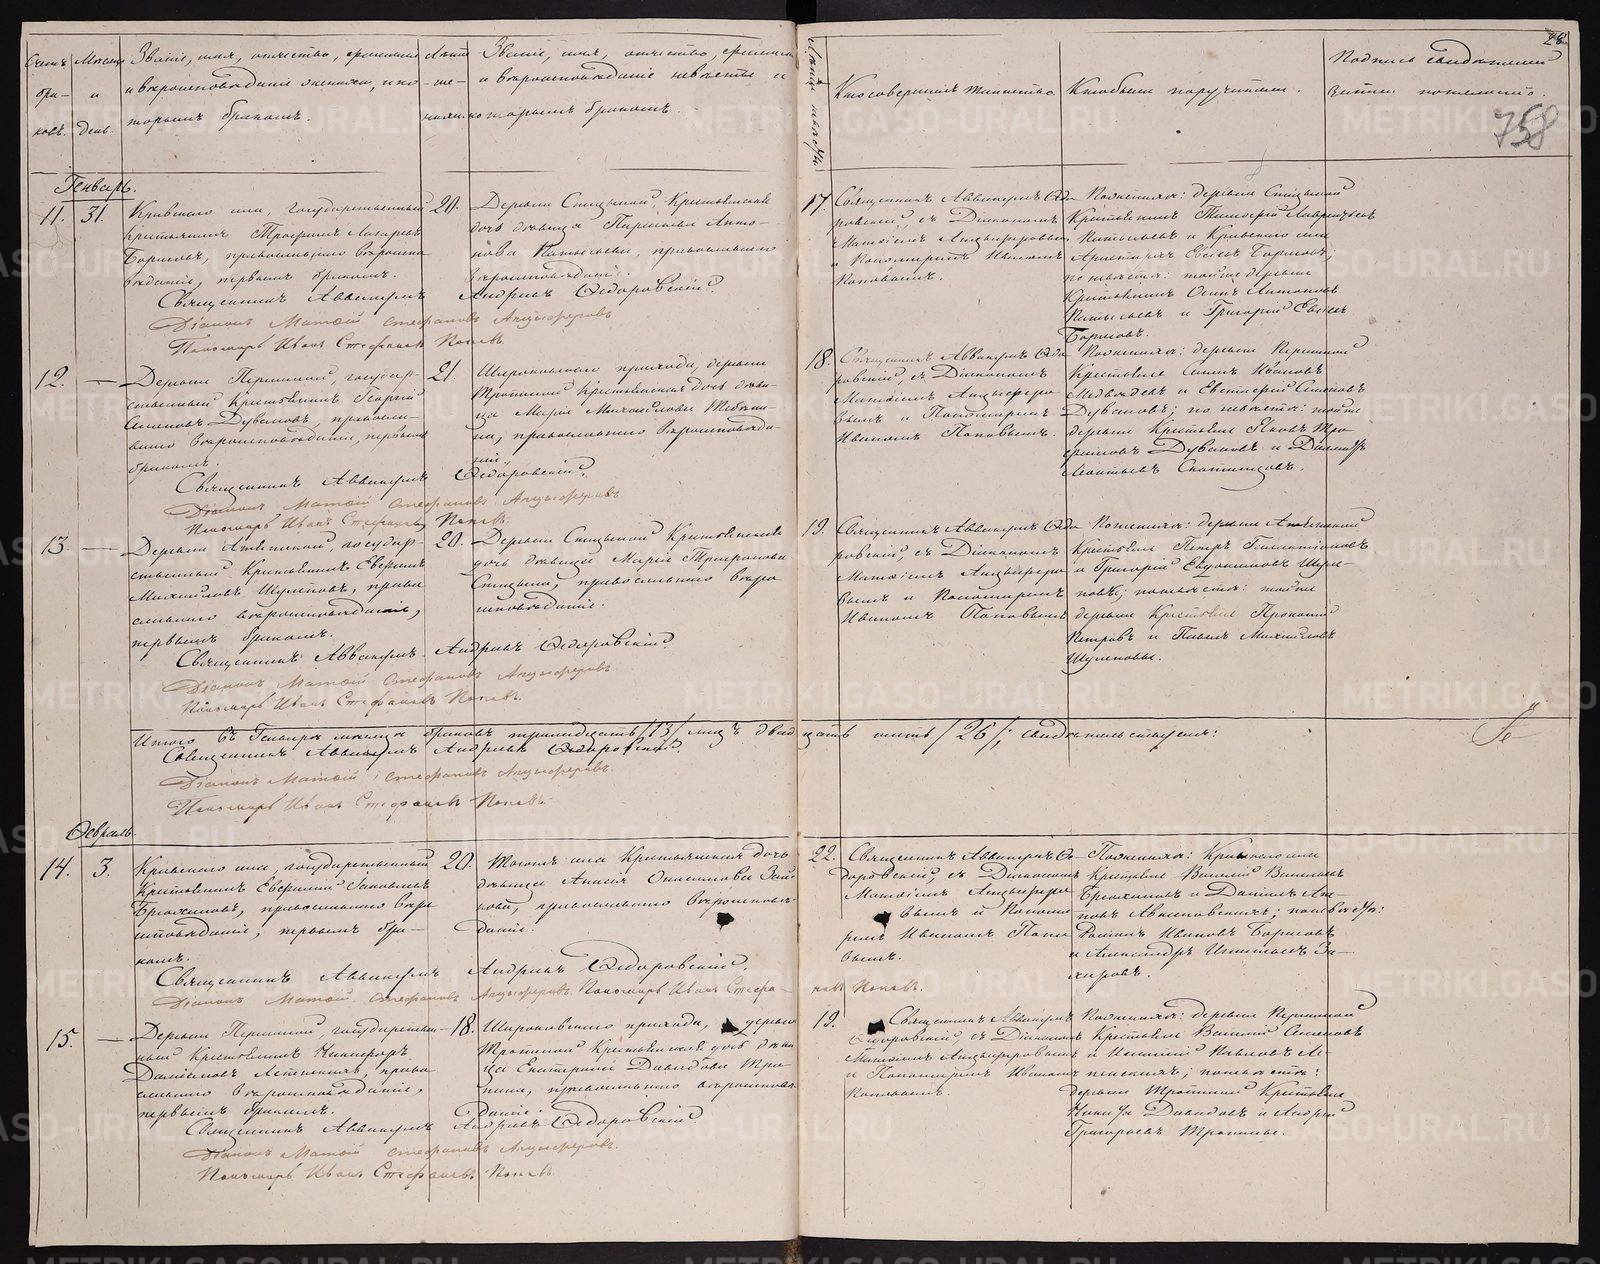 Счетъ бра- ковъ.
Месяцъ и день.
Званіе, имя, отчество, фамилія
и вѣроисповѣданіе жениха, и ко-
торымъ бракомъ.
Лѣта же- ниха.
Званіе, имя, отчество, фамилія
и вѣроисповѣданіе невѣсты и
которымъ бракомъ.
Лѣта невѣсты.
Кто совершалъ таинство.
Кто были поручители.
Подпись свидѣтелей
записи по желанію.
28
758
Генварь.
11. 31.
Кривскаго села, государственный
крестьянинъ Трофимъ Лазаревъ
Борисовъ, православнаго вѣроиспо
вѣданія, первымъ бракомъ.
20.
Деревни Спицыной, Крестьянская
дочь дѣвица Параскева Анто-
нова, православнаго
вѣроисповѣданія.
17.
Священникъ Аввакумъ Ѳедо
ровскій съ Діакономъ
Матѳіемъ Анцыферовымъ
и Пономаремъ Иваномъ
Поповымъ.
По женихѣ: деревни Спицыной
Крестьянинъ Тимофей Лаврентьевъ
и Кривскаго села
Евсей Борисовъ;
по невѣстѣ: той же деревни
Крестьянинъ Осипъ Антоновъ
и Григорій Евсеевъ
Борисовъ.
Священникъ Аввакумъ Андреевъ Ѳедоровскій.
Діаконъ Матѳій Стефановъ Анцыферовъ
Пономарь Иванъ Стефановъ Поповъ.
12. —
Деревни Першиной, государ-
ственный Крестьянинъ Георгій
Семеновъ Дувановъ, православ-
наго вѣроисповѣданія, первымъ
бракомъ.
21.
Широковскаго прихода, деревни
Тропиной Крестьянская дочь дѣви-
ца Марія Михайлова
православнаго вѣроисповѣда-
нія.
18.
Священникъ Аввакумъ Ѳедо
ровскій, съ Діакономъ
Матѳіемъ Анцыферо
вымъ и Пономаремъ
Иваномъ Поповымъ.
По женихѣ: деревни Першиной
Крестьяне Семенъ Ивановъ
Медвѣдевъ и Евстафій Семеновъ
Дувановъ; по невѣстѣ: той же
деревни Крестьяне Яковъ Тро
фимовъ Дувановъ и
Леонтьевъ
Священникъ Аввакумъ Ѳедоровскій.
Діаконъ Матѳій Стефановъ Анцыферовъ
Пономарь Иванъ Стефановъ Поповъ.
13 —
Деревни государ-
ственный Крестьянинъ
Михайловъ Шулеповъ, право
славнаго вѣроисповѣданія,
первымъ бракомъ.
20.
Деревни Спицыной Крестьянская
дочь дѣвица Марія Трифонова
Спицына, православнаго вѣро
исповѣданія.
19.
Священникъ Аввакумъ Ѳедо
ровскій, съ Діакономъ
Матѳіемъ Анцыферо
вымъ и Пономаремъ
Иваномъ Поповымъ.
По женихѣ: деревни
Крестьяне Петръ Галактіоновъ
и Григорій Евдокимовъ Шуле-
повы; по невѣстѣ: той же
деревни Крестьяне Прокопій
Петровъ и Павелъ Михайловъ
Шулеповы.
Священникъ Аввакумъ Андреевъ Ѳедоровскій.
Діаконъ Матѳій Стефановъ Анцыферовъ
Пономарь Иванъ Стефановъ Поповъ.
Итого въ Генварѣ мѣсяцѣ браковъ тринадцать /13/ лицъ двадцать шесть /26/; свидѣтельствуемъ:
Священникъ Аввакумъ Андреевъ Ѳедоровскій.
Діаконъ Матѳій Стефановъ Анцыферовъ.
Пономарь Иванъ Стефановъ Поповъ.
Февраль.
14. 3.
Кривскаго села, государственный
Крестьянинъ Іаковлевъ
Брюхановъ, православнаго вѣро
исповѣданія, первымъ бра-
комъ.
20.
Тогоже села Крестьянская дочь
дѣвица Анисія
православнаго вѣроисповѣ
данія.
22.
Священникъ Аввакумъ Ѳе-
доровскій, съ Діакономъ
Матѳіемъ Анцыферо
вымъ и Понома
ремъ Иваномъ Попо
вымъ.
По женихѣ: Кривскаго села
Крестьяне Василій Васильевъ
Брюхановъ и Даніилъ
по невѣстѣ:
Ивановъ Борисовъ
и Александръ Игнатьевъ За-
харовъ.
Священникъ Аввакумъ Андреевъ Ѳедоровскій.
Діаконъ Матѳій Стефановъ Анцыферовъ Пономарь Иванъ Стефа-
новъ Поповъ.
15. —
Деревни Першиной, государствен-
ный Крестьянинъ Никифоръ
Даніиловъ право
славнаго вѣроисповѣданія,
первымъ бракомъ.
18.
Широковскаго прихода, деревни
Тропиной Крестьянская дочь дѣви
ца Екатерина Давидова Тро
пина, православнаго вѣроисповѣ
данія.
19.
Священникъ Аввакумъ
Ѳедоровскій, съ Діакономъ
Матѳіемъ Анцыферовымъ
и Пономаремъ Иваномъ
Поповымъ.
По женихѣ: деревни Першиной
Крестьяне Василій Семеновъ
и Павловъ
по невѣстѣ:
деревни Тропиной Крестьяне
Давидовъ и Андрей
Григорьевъ Тропины.
Священникъ Аввакумъ Андреевъ Ѳедоровскій.
Діаконъ Матѳій Стефановъ Анцыферовъ.
Пономарь Иванъ Стефановъ Поповъ.
METRIKI.GASO-URAL.RU